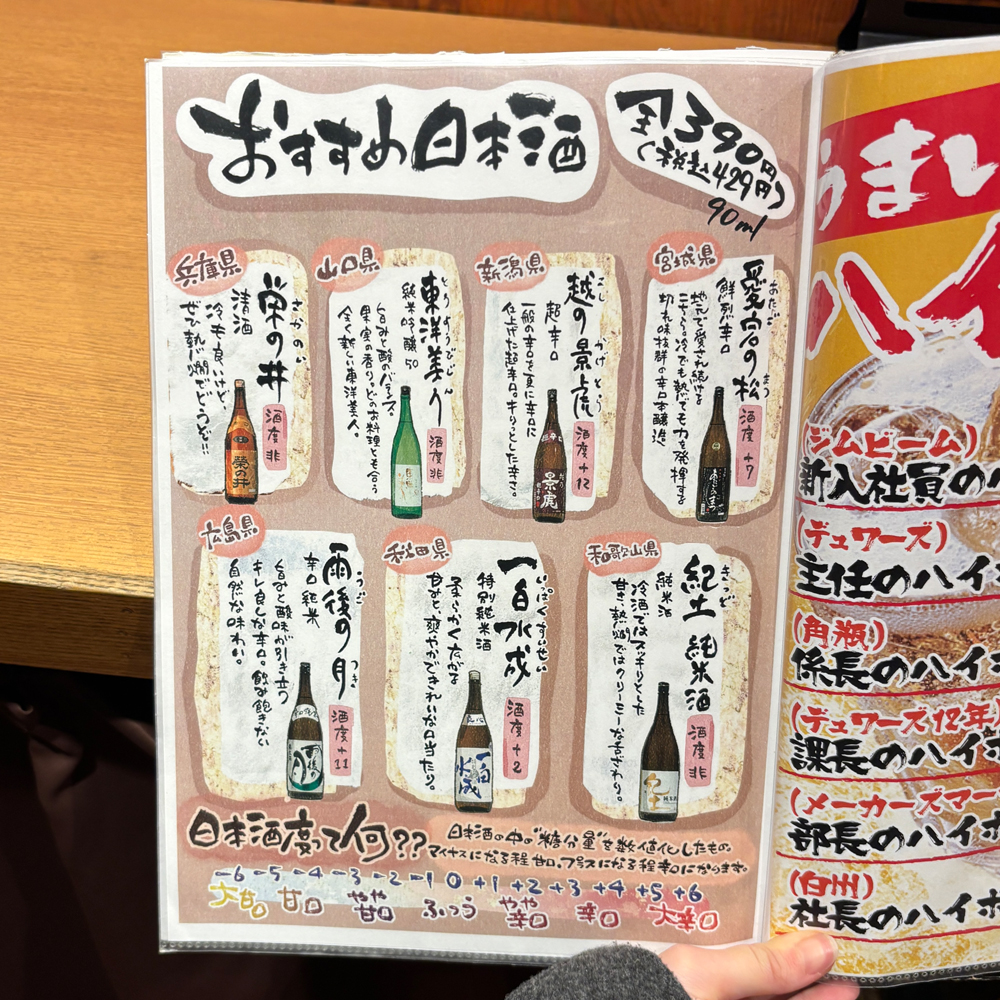 おすすめ日本酒
全390円
(税込429円)
90ml
兵庫県
さかのい
栄の井
清酒
冷も良いけど、
ぜひ熱燗でどうぞ!!
酒度 非
栄の井
山口県
とうようびじん
東洋美人
純米吟醸 50
旨みと酸のバランス、
果実の香り。どのお料理とも合う
全く新しい東洋美人。
酒度 非
新潟県
こしのかげとら
越の景虎
超辛口
一般の辛口を更に辛口に
仕上げた超辛口。キリっとした辛さ。
酒度 +12
景虎
宮城県
あたごのまつ
愛宕の松
鮮烈辛口
地元で愛され続ける
こちらも冷でも熱でも力を発揮する
切れ味抜群の辛口本醸造。
酒度 +7
あたごのまつ
広島県
うごのつき
雨後の月
辛口純米
旨みと酸味が引き立つ
キレ良しな辛口。飲み飽きない
自然な味わい。
酒度 +11
雨後の月
秋田県
いっぱくすいせい
一白水成
特別純米酒
柔らかく広がる
甘みと、爽やかできれいな口当たり。
酒度 +2
一白水成
和歌山県
きっど
紀土 純米酒
純米酒
冷酒ではスッキリとした
甘さ、熱燗ではクリーミーな舌ざわり。
酒度 非
紀土
日本酒度って何??
日本酒の中の"糖分量"を数値化したもの。
マイナスになる程甘口、プラスになる程辛口になります。
-6 -5 -4 -3 -2 -1 0 +1 +2 +3 +4 +5 +6
大甘口 甘口 やや甘口 ふつう やや辛口 辛口 大辛口
うまい
ハイ
(ジムビーム)
新入社員の
(デュワーズ)
主任のハイ
(角瓶)
係長のハイ
(デュワーズ12年)
課長のハイ
(メーカーズマー
部長のハイ
(白州)
社長のハイ